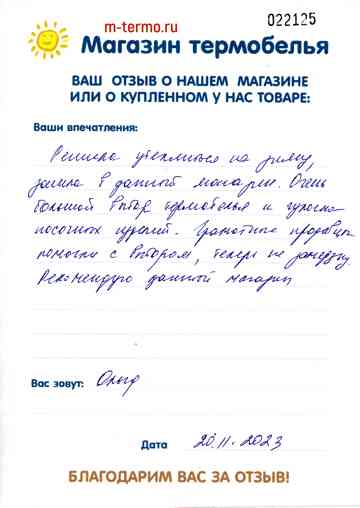 m-termo.ru
022125
Магазин термобелья
ВАШ ОТЗЫВ О НАШЕМ МАГАЗИНЕ
ИЛИ О КУПЛЕННОМ У НАС ТОВАРЕ:
Ваши впечатления:
Решила утеплиться на зиму,
зашла в данный магазин. Очень
большой выбор термобелья и чулочно-
носочных изделий. Грамотные продавцы
помогли с выбором, теперь не замёрзну
Рекомендую данный магазин
Вас зовут: Ольга
Дата 20.11.2023
БЛАГОДАРИМ ВАС ЗА ОТЗЫВ!